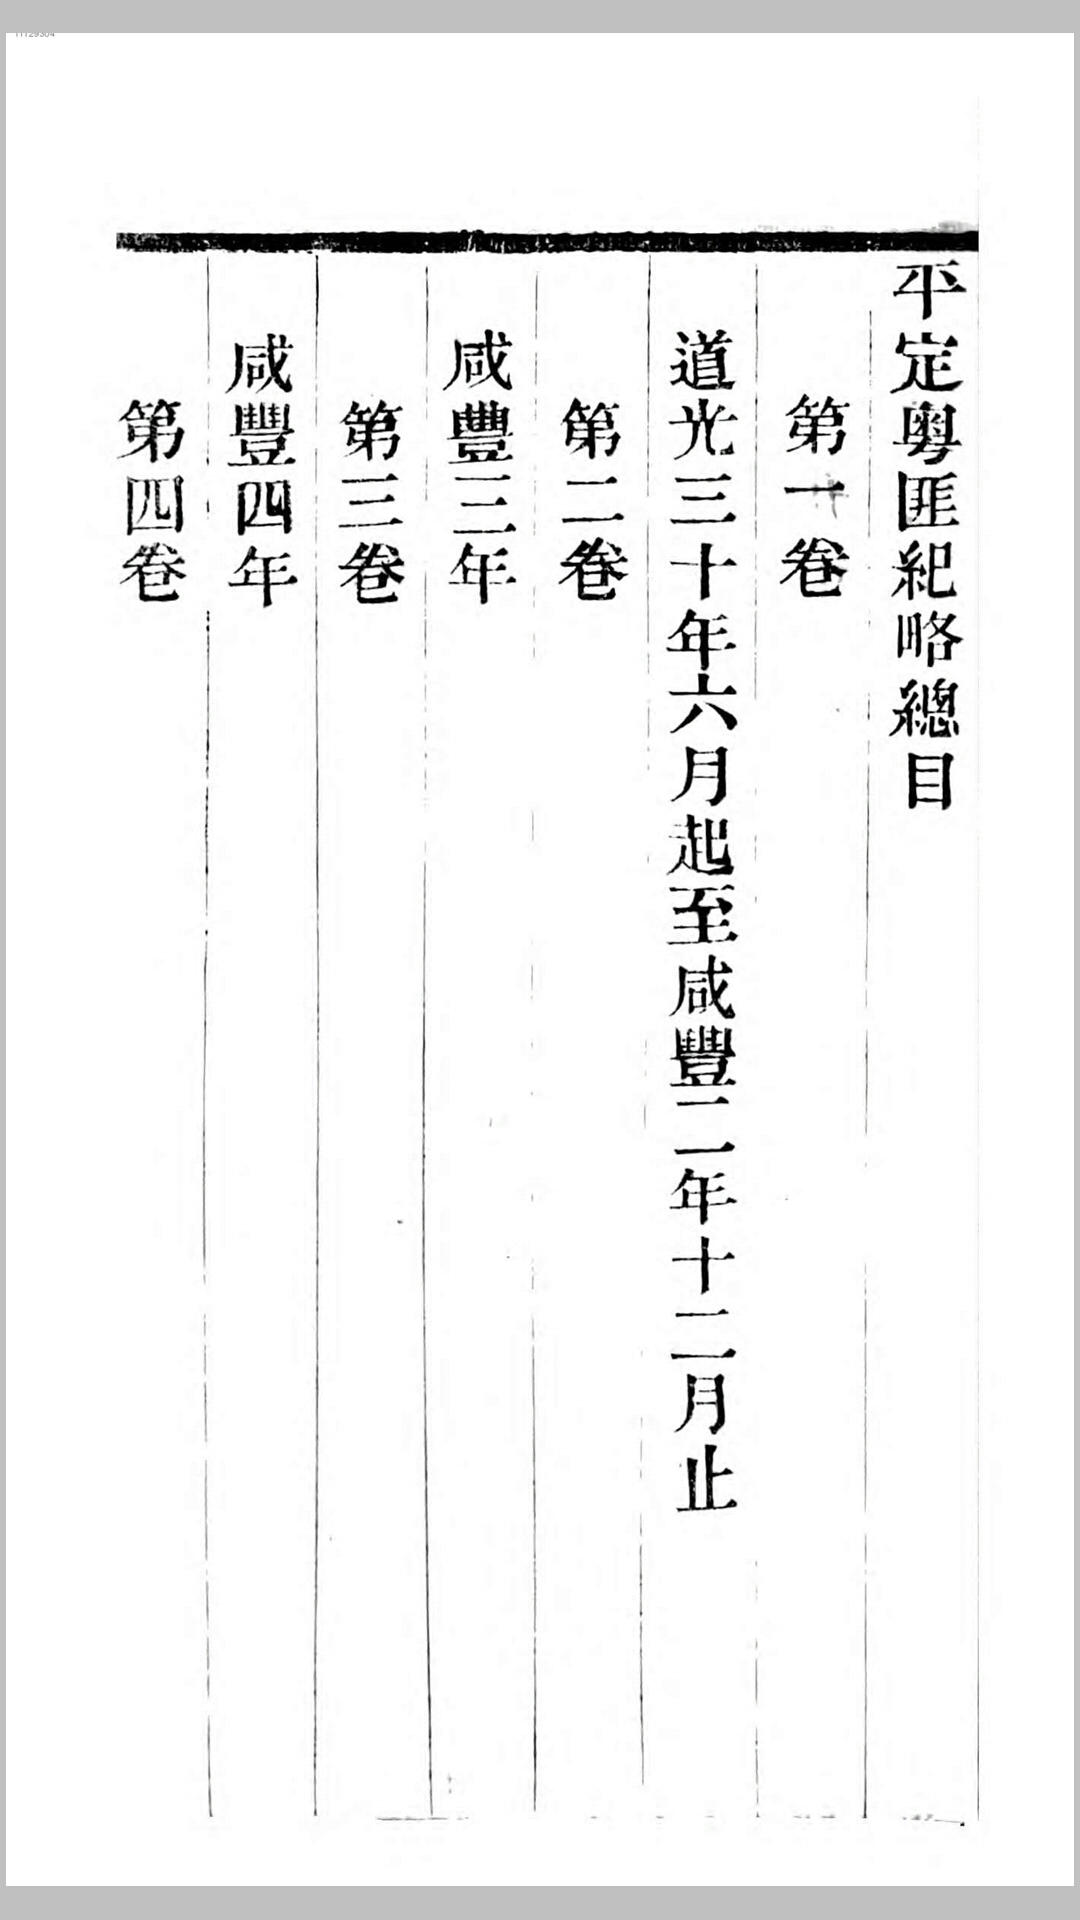 平定粵匪紀略總目
第一卷
道光三十年六月起至咸豐二年十二月止
第二卷
咸豐三年
第三卷
咸豐四年
第四卷